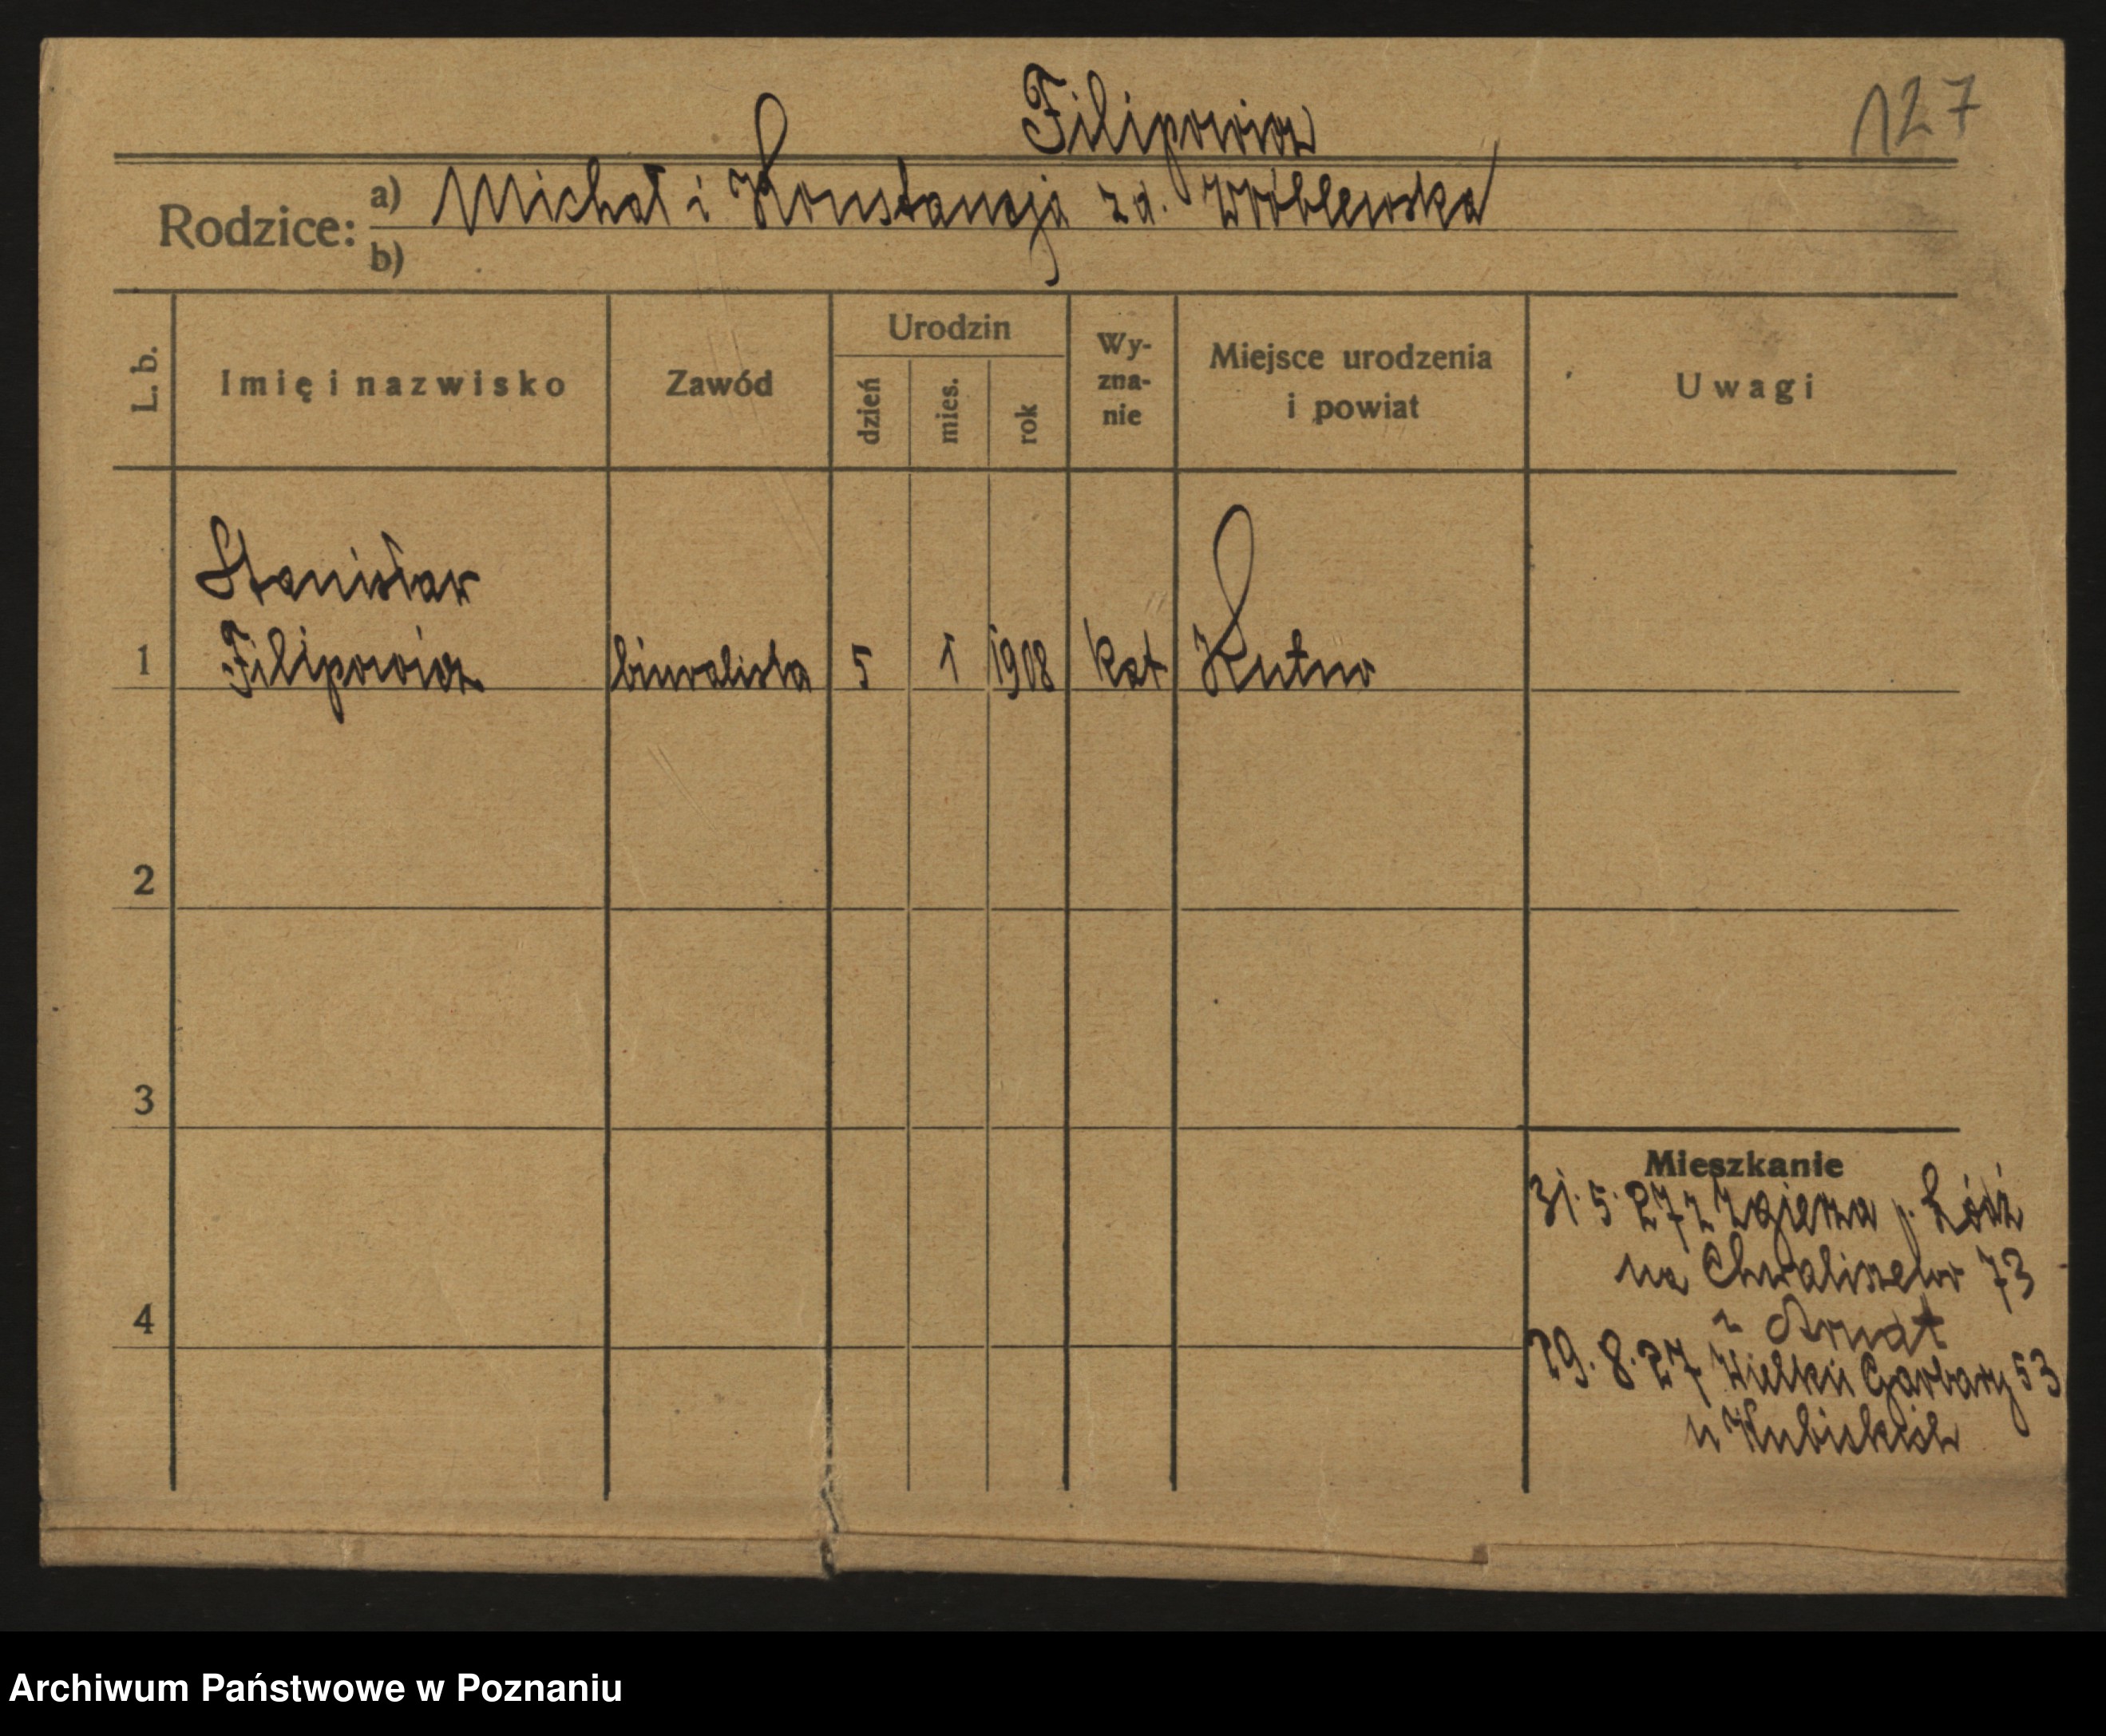 Filipowicz
127
Rodzice:
a) Michał i Konstancja zd. Wróblewska
b)
L. b.
Imię i nazwisko
Zawód
Urodzin
dzień
mies.
rok
Wy-
zna-
nie
Miejsce urodzenia
i powiat
Uwagi
Stanisław
1 Filipowicz biuralista 5 1 1908 kat Kutno
2
3
4
Mieszkanie
31.5.27 z Zgierza p. Łódź
na Chwaliszewo 73
29.8.27 Wielkie Garbary 53
u Kubickich
Archiwum Państwowe w Poznaniu